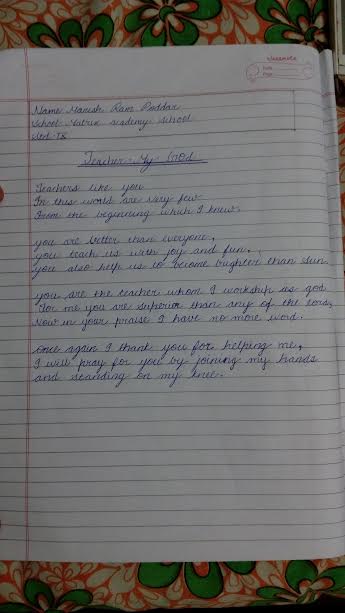 Name Manish Ram Poddar
School Matrix academy school
Std IX
Teacher My God
Teachers like you
In this world are very few
From the beginning which I knew.
you are better than everyone,
you teach us with joy and fun,
you also help us to become brighter than sun.
you are the teacher whom I workship as god
For me you are superior than any of the lord,
Now in your praise I have no more word.
once again I thank you for helping me,
I will pray for you by joining my hands
and standing on my knee.
Date
Page